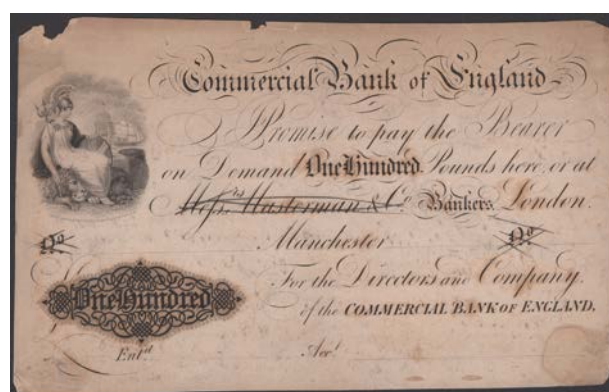 Commercial Bank of England
I Promise to pay the Bearer
on Demand One Hundred Pounds here, or at
Messrs Masterman & Co. Bankers, London.
Manchester
No No
For the Directors and Company,
of the COMMERCIAL BANK OF ENGLAND,
One Hundred
Entd. Acct.